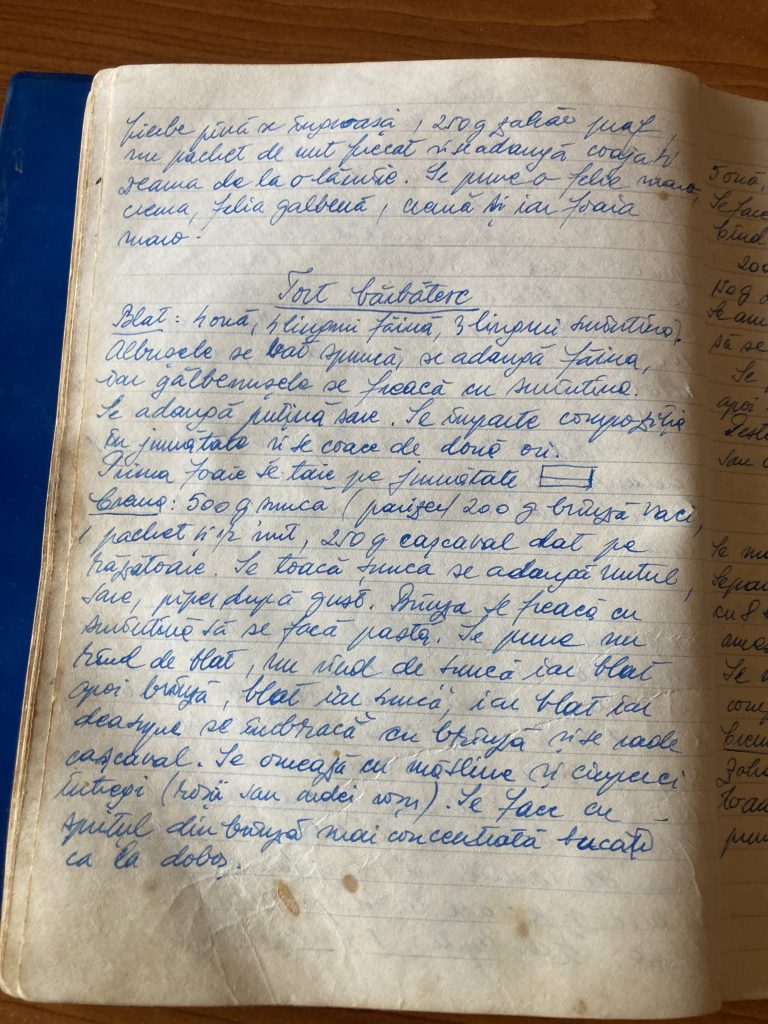 fierbe pînă se îngroașă, 250 g zahăr praf,
un pachet de unt frecat și se adaugă coaja și
zeama de la o lămîie. Se pune o felie maro,
crema, felia galbenă, cremă și iar foaia
maro.
Tort bărbătesc
Blat: 4 ouă, 4 linguri făină, 3 linguri smîntînă.
Albușele se bat spumă, se adaugă făina,
iar gălbenușele se freacă cu smîntîna.
Se adaugă puțină sare. Se împarte compoziția
în jumătate și se coace de două ori.
Prima foaie se taie pe jumătate
Crema: 500 g șuncă (parizer) 200 g brînză vaci,
1 pachet și 1/2 unt, 250 g cașcaval dat pe
răzătoare. Se toacă șunca se adaugă untul,
sare, piper după gust. Brînza se freacă cu
smîntînă să se facă pastă. Se pune un
rînd de blat, un rînd de șuncă iar blat
apoi brînză, blat iar șuncă, iar blat iar
deasupra se îmbracă cu brînză și se rade
cașcaval. Se ornează cu măsline și ciuperci
întregi ( sau ardei roșu). Se face cu
șprițul din brînză mai concentrată bucăți
ca la doboș.
5 ouă,
Se face
Cînd
200
se
Se
apoi
Peste
sau
Se
Separ
cu 8
Se
comp
Crema